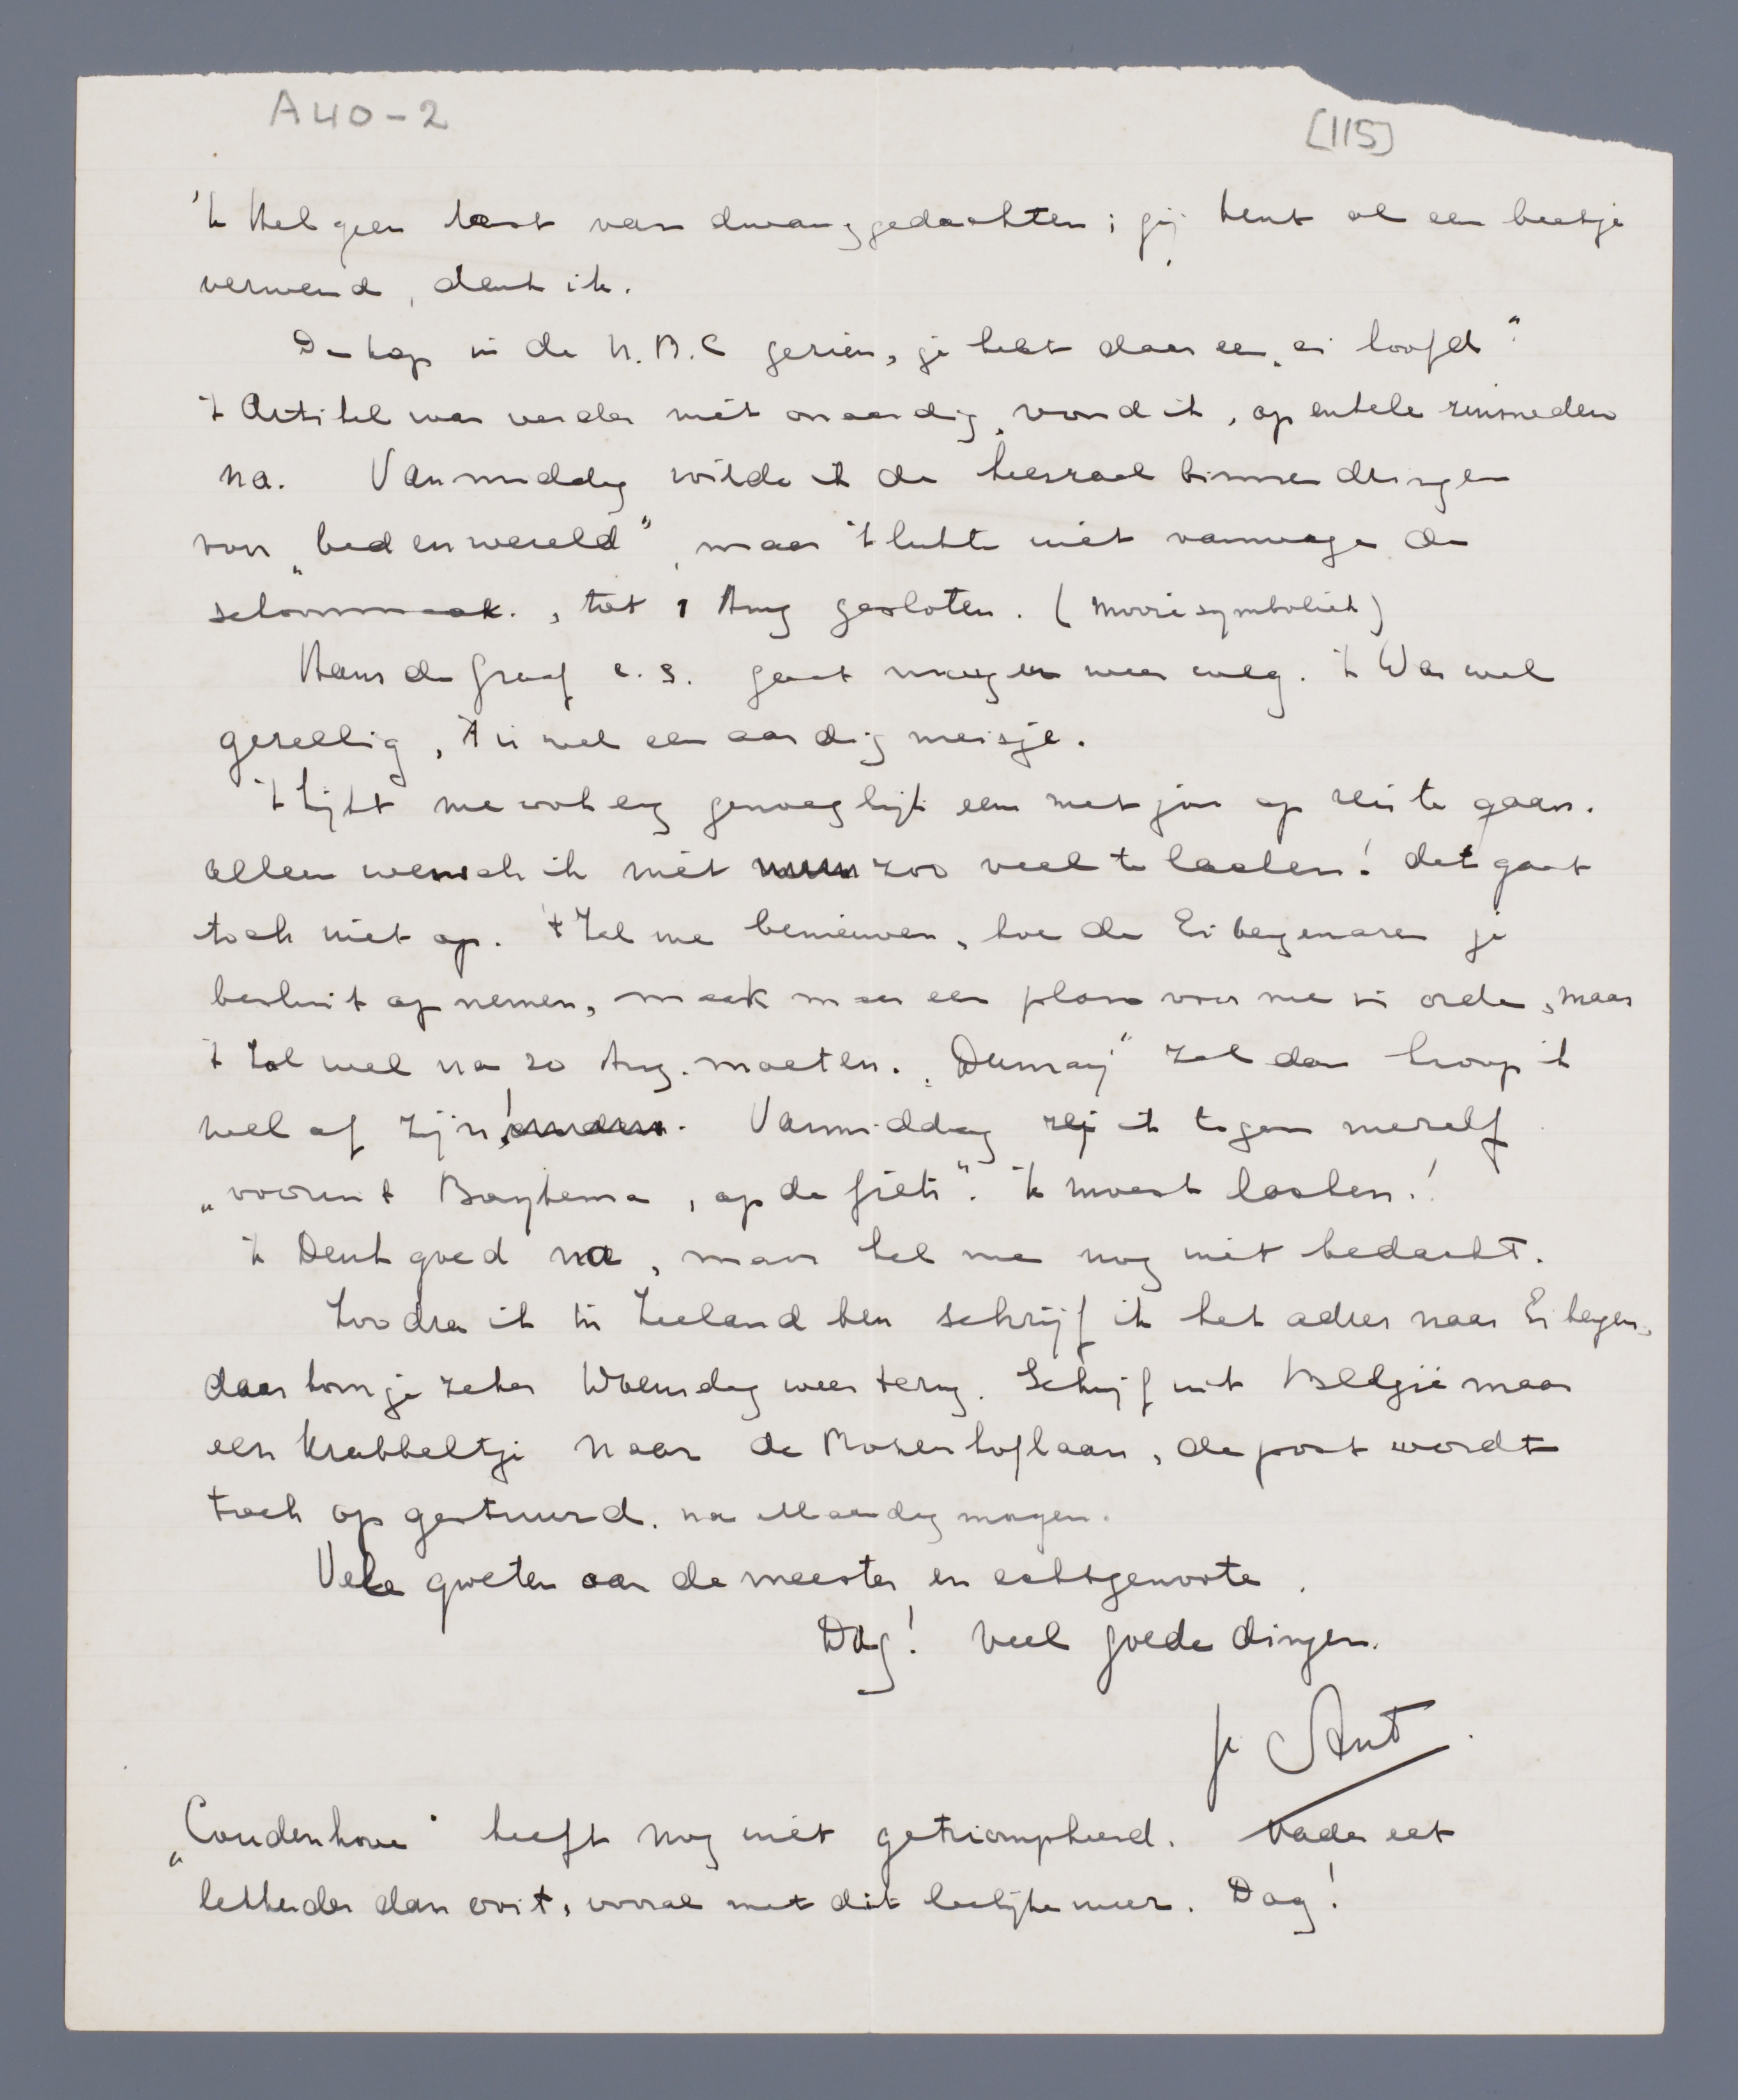 A40-2
[115]
'k Heb geen last van dwanggedachten; jij bent al een beetje
verwend, denk ik.
De kop in de N.B.C gezien, je hebt daar een „ei hoofd"
't Artikel was verder niet onaardig, vond ik, op enkele zinsneden
na. Vanmiddag wilde ik de leeszaal binnendringen
voor „bed en wereld", maar 't lukte niet vanwege de
schoonmaak., tot 1 Aug gesloten. (mooie symboliek)
Hans de Graaf c.s. gaat morgen weer weg. 't Was wel
gezellig, 't is wel een aardig meisje.
't Lijkt me wel erg genoeglijk eens met jou op reis te gaan.
alleen wensch ik niet zoo veel te lachen! dat gaat
toch niet op. 't Zal me benieuwen, hoe de Eibergenaren je
besluit opnemen, maak maar een plan voor me in orde, maar
't zal wel na 20 Aug. moeten. „Dumay" zal dan hoop ik
wel af zijn! Vanmiddag zei ik tegen mezelf
„vooruit Buytema, op de fiets". 'k moest lachen!
'k Denk goed na, maar heb me nog niet bedacht.
Zoodra ik in Zeeland ben schrijf ik het adres naar Eibergen,
daar kom je zeker Woensdag weer terug. Schrijf uit België maar
een krabbeltje naar de Mosenhoflaan, de post wordt
toch opgestuurd. na Maandag morgen.
Vele groeten aan de meester en echtgenoote.
Dag! Veel goede dingen.
Je Ant.
„Coudenhove" heeft nog niet getriompheerd. Vader eet
lekkerder dan ooit, vooral met dit leelijke weer. Dag!